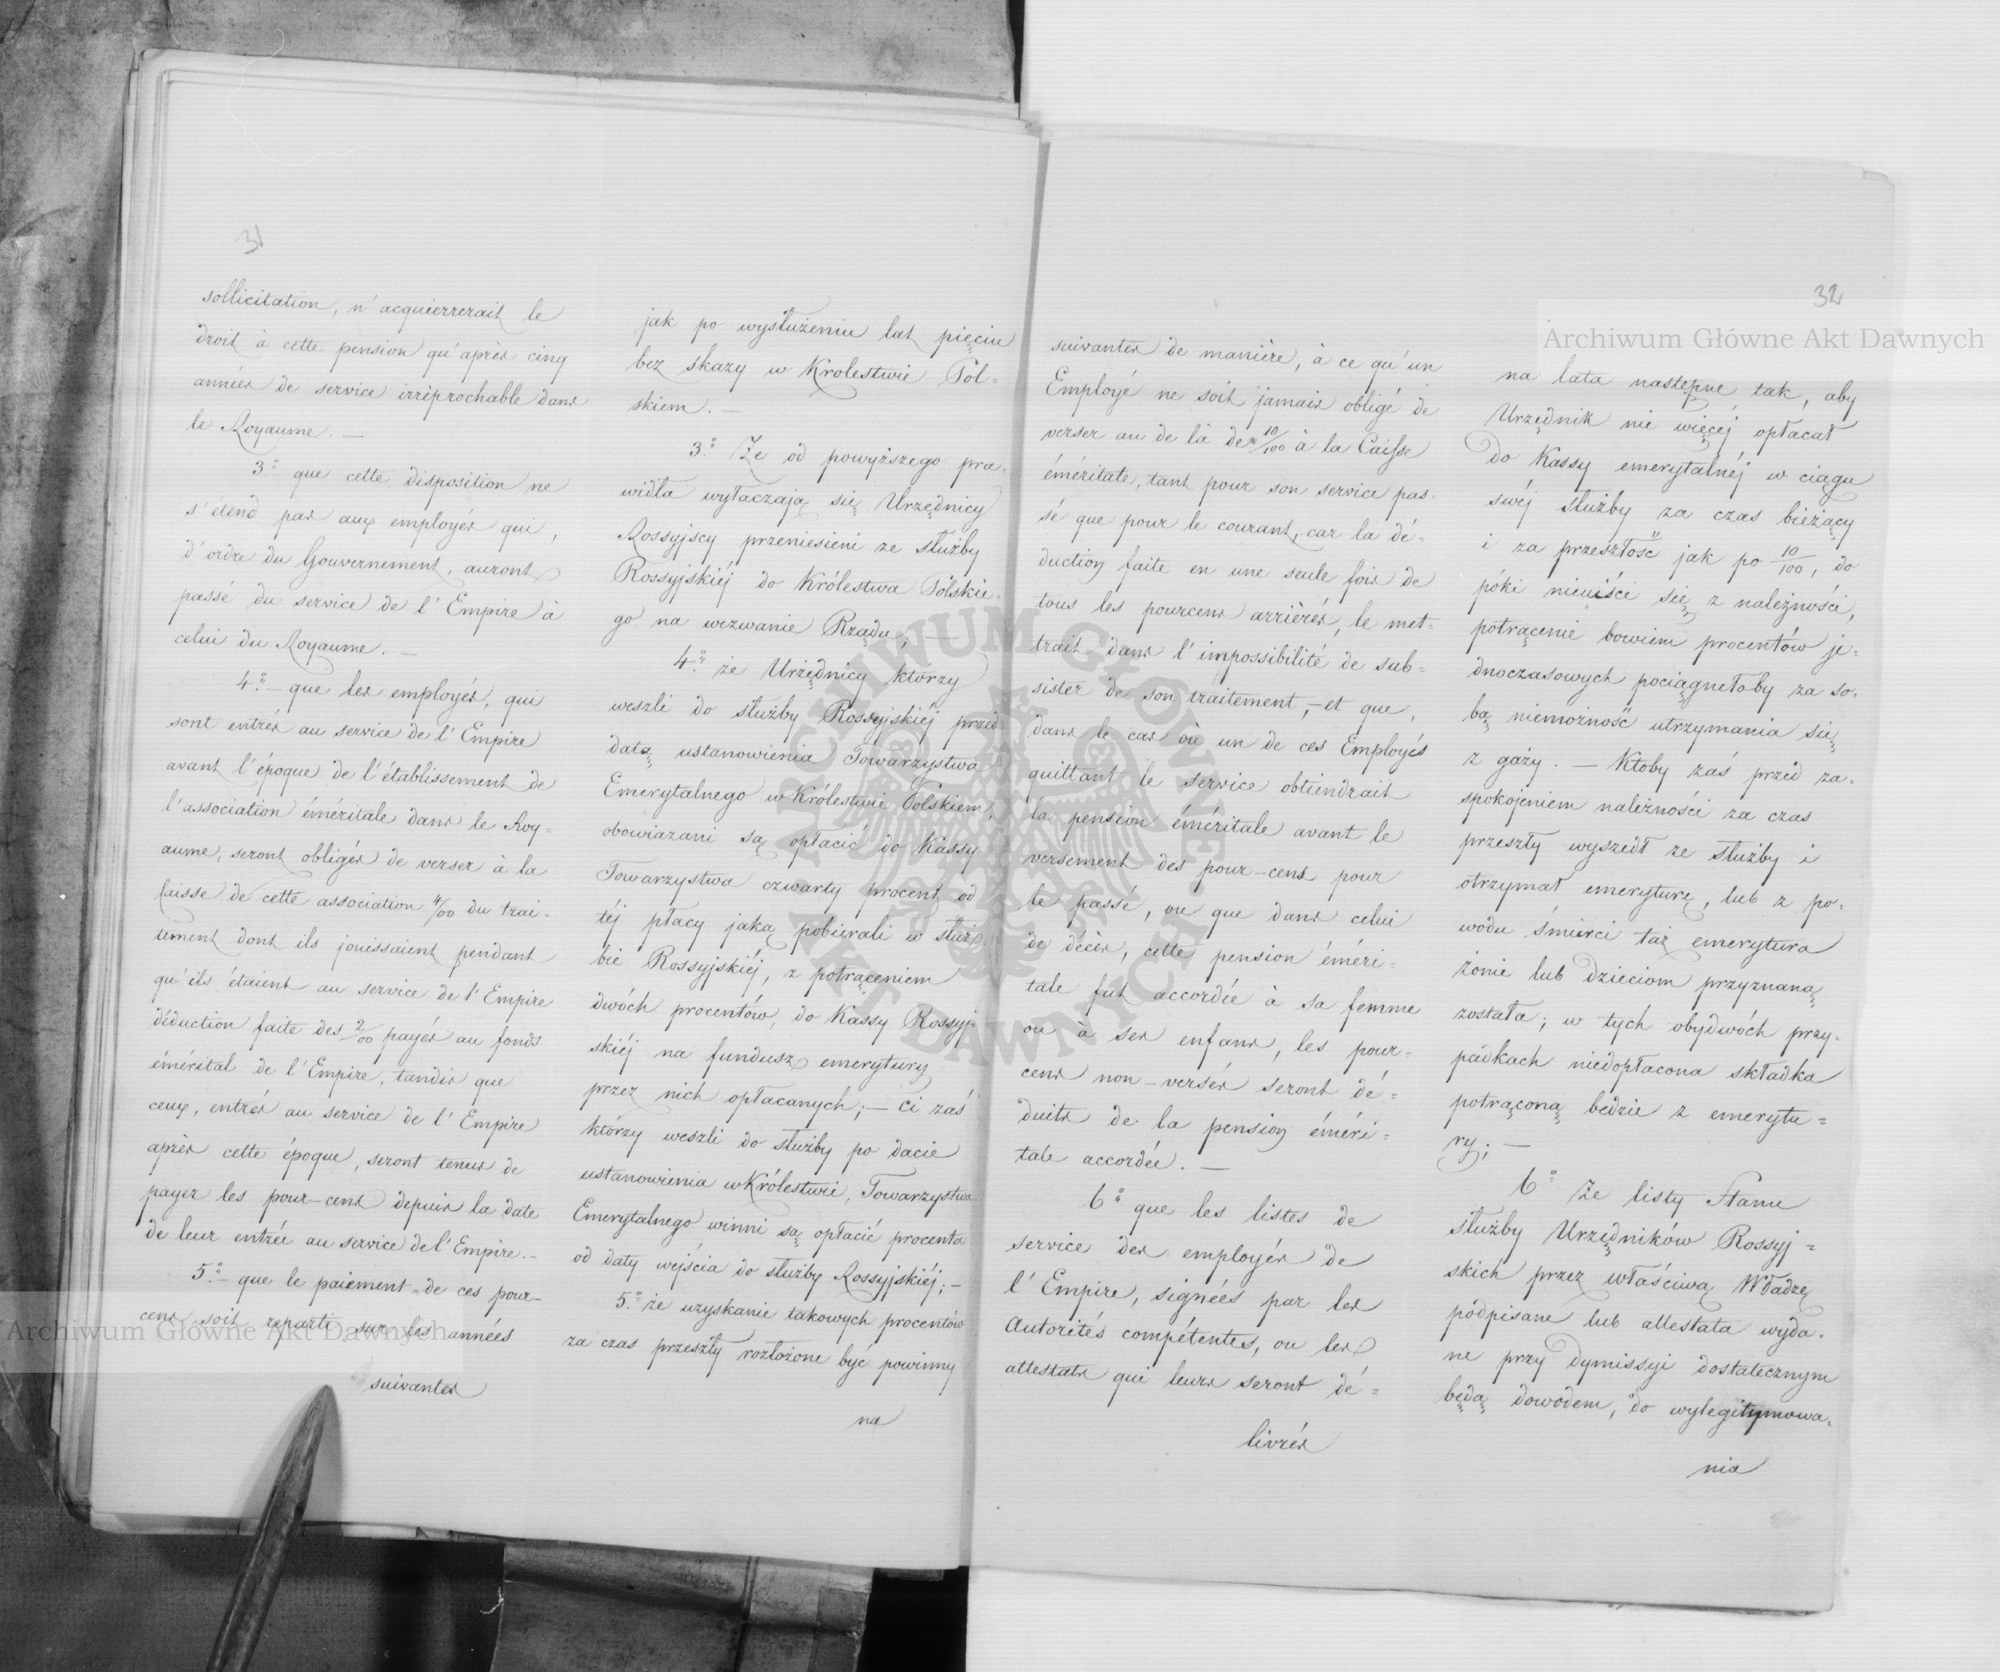 31
sollicitation, n'acquièrrerait le
droit à cette pension qu'après cinq
années de service irréprochable dans
le Royaume. —
3.° que cette disposition ne
s'étend pas aux employés qui,
d'ordre du Gouvernement, auront
passé du service de l'Empire à
celui du Royaume. —
4.° — que les employés, qui
sont entrés au service de l'Empire
avant l'époque de l'établissement de
l'association éméritale dans le Roy=
aume, seront obligés de verser à la
Caisse de cette association 4/00 du trai=
tement dont ils jouissaient pendant
qu'ils étaient au service de l'Empire
déduction faite des 2/00 payés au fonds
émérital de l'Empire, tandis que
ceux, entrés au service de l'Empire
après cette époque, seront tenus de
payer les pour-cent depuis la date
de leur entrée au service de l'Empire. —
5.° — que le paiement de ces pour-
cens soit reparti sur les années
suivantes
jak po wysłużeniu lat pięciu
bez skazy w Krolestwie Pol=
skiem. —
3.° Że od powyższego pra=
widła wyłaczają się Urzędnicy
Rossyjscy przeniesieni ze służby
Rossyjskiéj do Królestwa Polskie=
go na wezwanie Rządu; —
4.° że Urzędnicy którzy
weszli do służby Rossyjskiéj przed
datą ustanowienia Towarzystwa
Emerytalnego w Królestwie Polskiem,
obowiazani są opłacić do Kassy
Towarzystwa czwarty procent od
téj płacy jaką pobierali w służ=
bie Rossyjskiéj, z potrąceniem
dwóch procentów, do Kassy Rossyj=
skiéj na fundusz emerytury
przez nich opłacanych; — ci zaś
którzy weszli do służby po dacie
ustanowienia w Królestwie, Towarzystwa
Emerytalnego winni są opłacić procenta
od daty wejścia do służby Rossyjskiéj; —
5.° że uzyskanie takowych procentów
za czas przeszły rozłożone być powinny
na
32
suivantes de manière, à ce qu'un
Employé ne soit jamais obligé de
verser au de là des 10/100 à la Caisse
éméritale, tant pour son service pas=
sé que pour le courant, car la dé=
duction faite en une seule fois de
tous les pourcens arriérés, le met=
trait dans l'impossibilité de sub=
sister de son traitement, — et que,
dans le cas où un de ces Employés
quittant le service obtiendrait
la pension éméritale avant le
versement des pour-cens pour
le passé, ou que dans celui
de décès, cette pension éméri=
tale fut accordée à sa femme
ou à ses enfans, les pour=
cens non-versés seront dé=
duits de la pension éméri=
tale accordée. —
6° que les listes de
service des employés de
l'Empire, signées par les
Autorités compétentes, ou les
attestats qui leurs seront dé=
livrés
na lata nastepne tak, aby
Urzędnik nie więcéj opłacał
do Kassy emerytalnéj w ciągu
swéj służby za czas bieżący
i za przeszłość jak po 10/100, do
póki nieuiści się z należności,
potrącenie bowiem procentów je=
dnoczasowych pociągnełoby za so=
bą niemożność utrzymania się
z gaży. — Ktoby zaś przed za=
spokojeniem należności za czas
przeszły wyszedł ze służby i
otrzymał emeryturę, lub z po=
wodu śmierci taż emerytura
żonie lub dzieciom przyznaną
została; w tych obydwóch przy=
padkach niedopłacona składka
potrąconą bedzie z emerytu=
ry; —
6° Że listy Stanu
służby Urzędników Rossyj=
skich przez właściwą Władzę
podpisane lub attestata wyda=
ne przy dymissyi dostatecznym
będą dowodem, do wylegitymowa=
nia
Archiwum Główne Akt Dawnych
Archiwum Główne Akt Dawnych
ARCHIWUM GŁÓWNE
AKT DAWNYCH